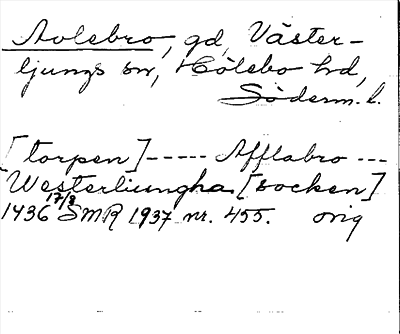 Avlebro, gd, Väster-
ljungs sn, Hölebo hd,
Söderm. l.
[torpen]----- Afflabro ---
Westerliungha [socken]
1436 17/8 SMR 1937 nr. 455. orig